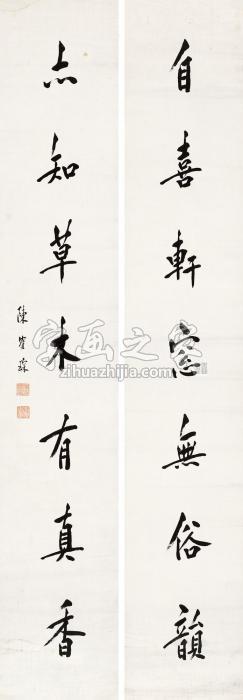 自喜軒窓無俗韻
亦知草木有真香
陳霖
字画之家
zihuazhijia.com